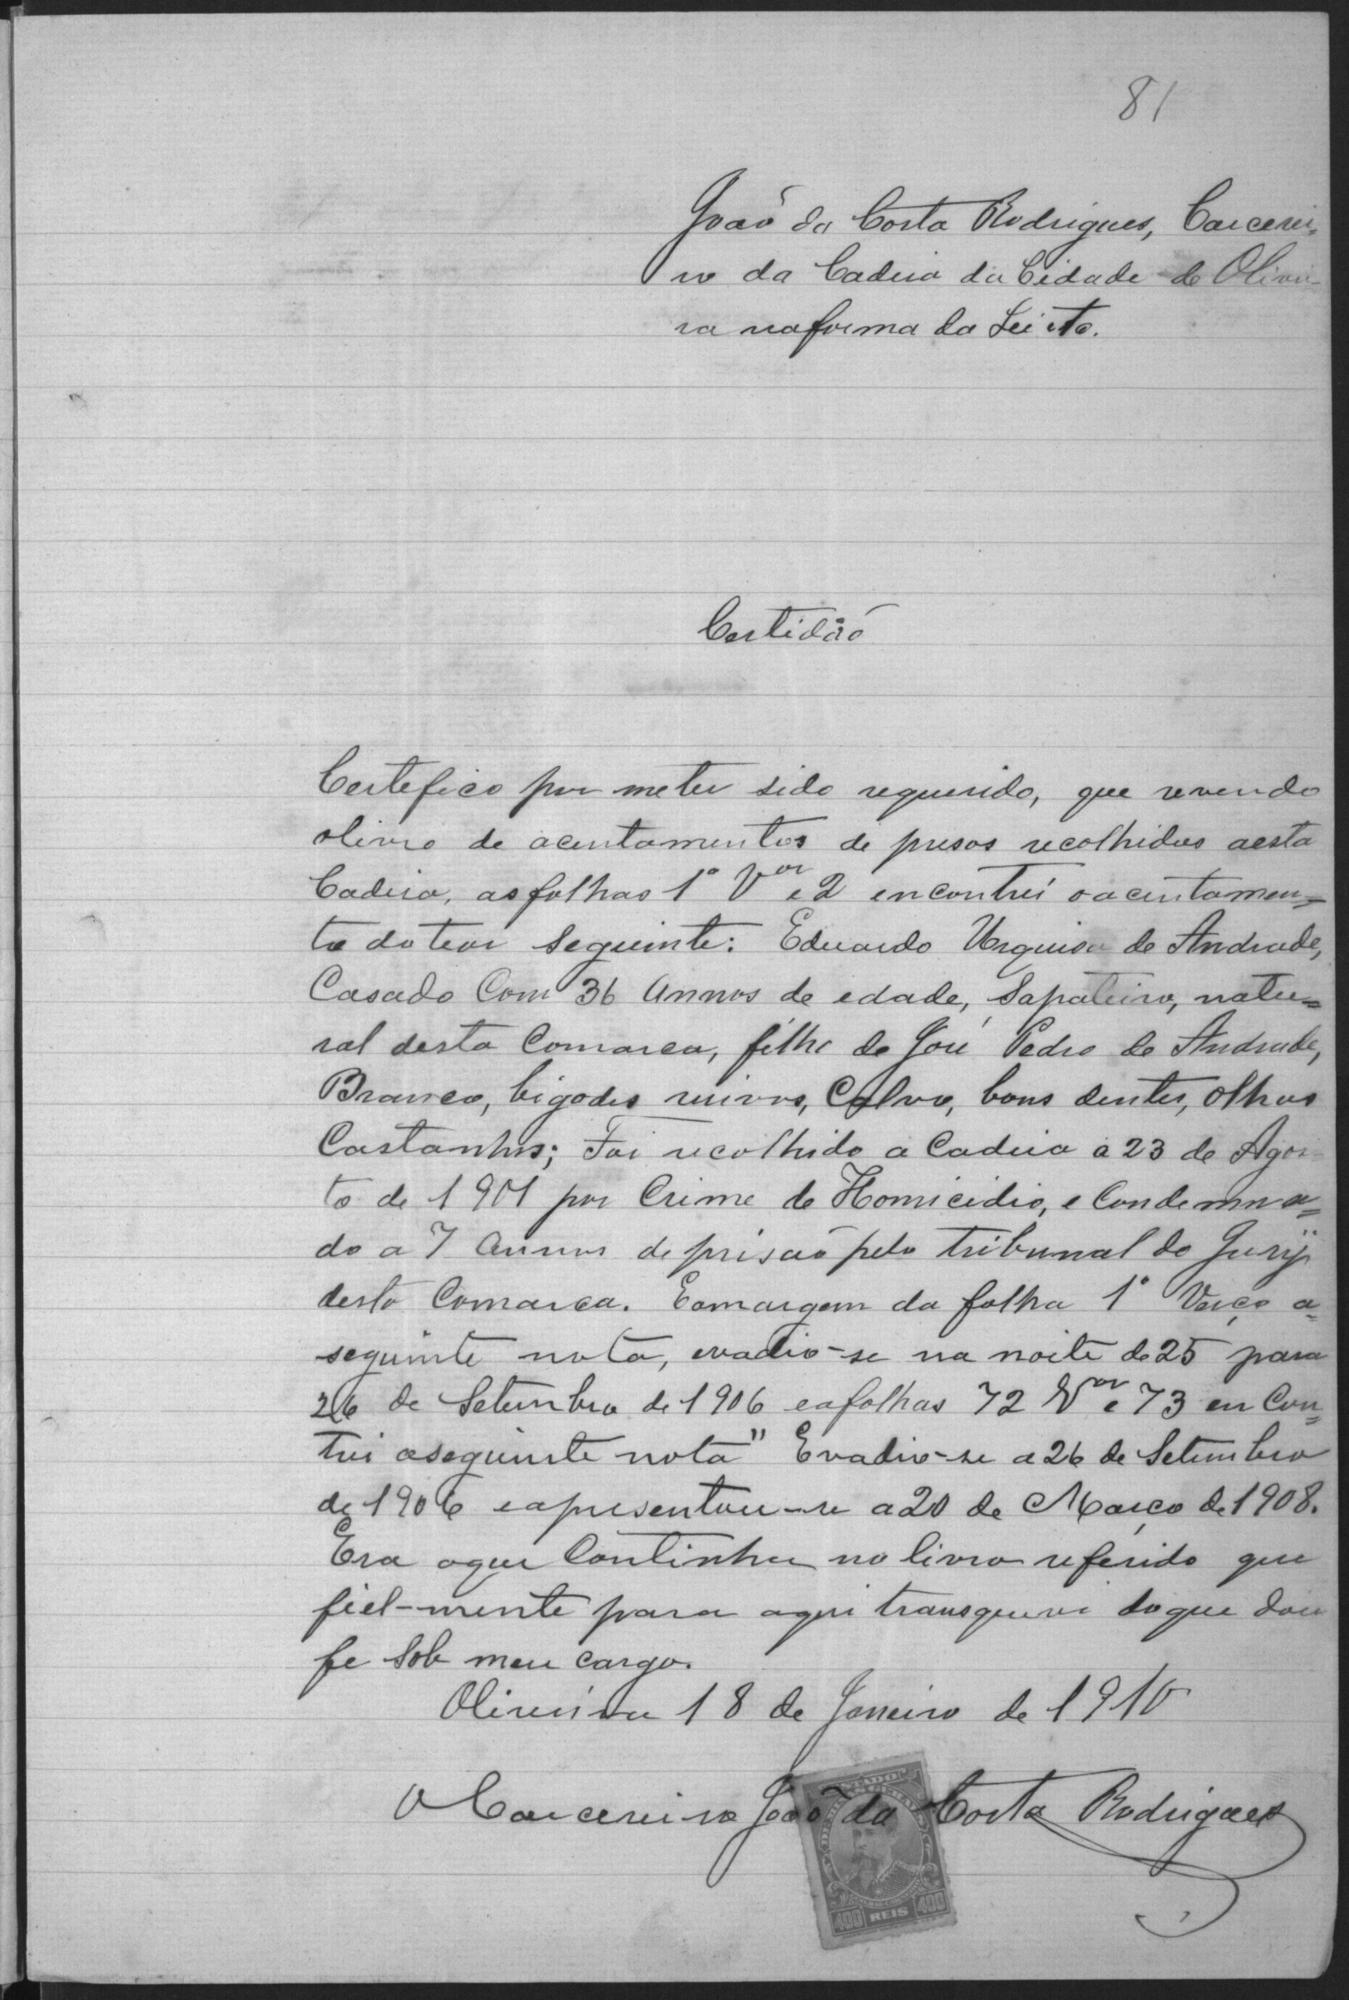 81
João da Costa Rodrigues, Carcerei-
ro da Cadeia da Cidade de Olivei-
ra na forma da Lei etc.
Certidão
Certefico por meter sido requerido, que revendo
olivro de acentamentos de presos recolhidos aesta
Cadeia, asfolhas 1º Vor e 2 encontrei oacentamen=
to doteor Seguinte: Eduardo Urquisa de Andrade,
Casado Com 36 Annos de edade, Sapateiro, natu=
ral desta Comarca, filho de José Pedro de Andrade,
Branco, bigodes ruivos, Calvo, bons dentes, olhos
Castanhos; Foi recolhido a Cadeia a 23 de Agos-
to de 1901 por Crime de Homicidio, e Condemna=
do a 7 Annos de prisão pelo tribunal do Jury
desta Comarca. Eamargem da folha 1º Verço a=
seguinte nota, evadio-se na noite de 25 para
26 de Setembro de 1906 eafolhas 72 Vor e 73 en Con=
trei aseguinte nota" Evadio-se a 26 de Setembro
de 1906 eapresentou-se a 20 de Março de 1908.
Era oque Continha no livro referido que
fiel-mente para aqui transquevi doque dou
fe Sob meu cargo.
Oliveira 18 de Janeiro de 1910
O Carcereiro João da Costa Rodrigues
ESTADO
DE MINAS GERAES
400 REIS 400